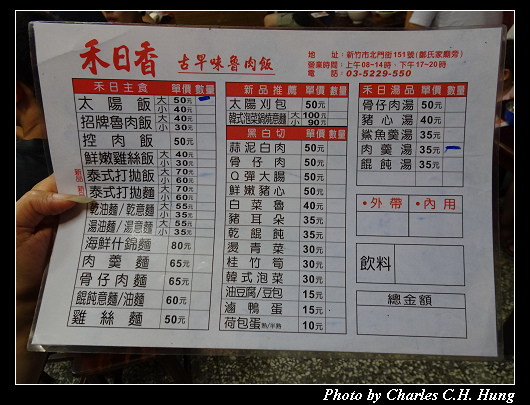 禾日香 古早味魯肉飯
地 址：新竹市北門街151號(鄭氏家廟旁)
營業時間：上午08~14時、下午17~20時
電 話：03-5229-550
禾日主食 單價 數量
太陽飯 大 50元
小 40元
招牌魯肉飯 大 40元
小 30元
控肉飯 50元
鮮嫩雞絲飯 大 40元
小 30元
新品 泰式打拋飯 大 70元
小 60元
新品 泰式打拋麵 大 70元
小 60元
乾油麵/乾意麵 大 55元
小 35元
湯油麵/湯意麵 大 55元
小 35元
海鮮什錦麵 80元
肉羹麵 65元
骨仔肉麵 65元
餛飩意麵/油麵 60元
雞絲麵 50元
新品推薦 單價 數量
太陽刈包 50元
韓式泡菜鍋燒意麵 大 100元
小 90元
黑白切 單價 數量
蒜泥白肉 50元
骨仔肉 50元
Q彈大腸 50元
鮮嫩豬心 50元
白菜魯 40元
豬耳朵 35元
乾餛飩 35元
燙青菜 30元
桂竹筍 30元
韓式泡菜 30元
油豆腐/豆包 15元
滷鴨蛋 15元
荷包蛋熟/半熟 10元
禾日湯品 單價 數量
骨仔肉湯 50元
豬心湯 40元
鯊魚羹湯 35元
肉羹湯 35元
餛飩湯 35元
•外帶 •內用
飲料
總金額
Photo by Charles C.H. Hung